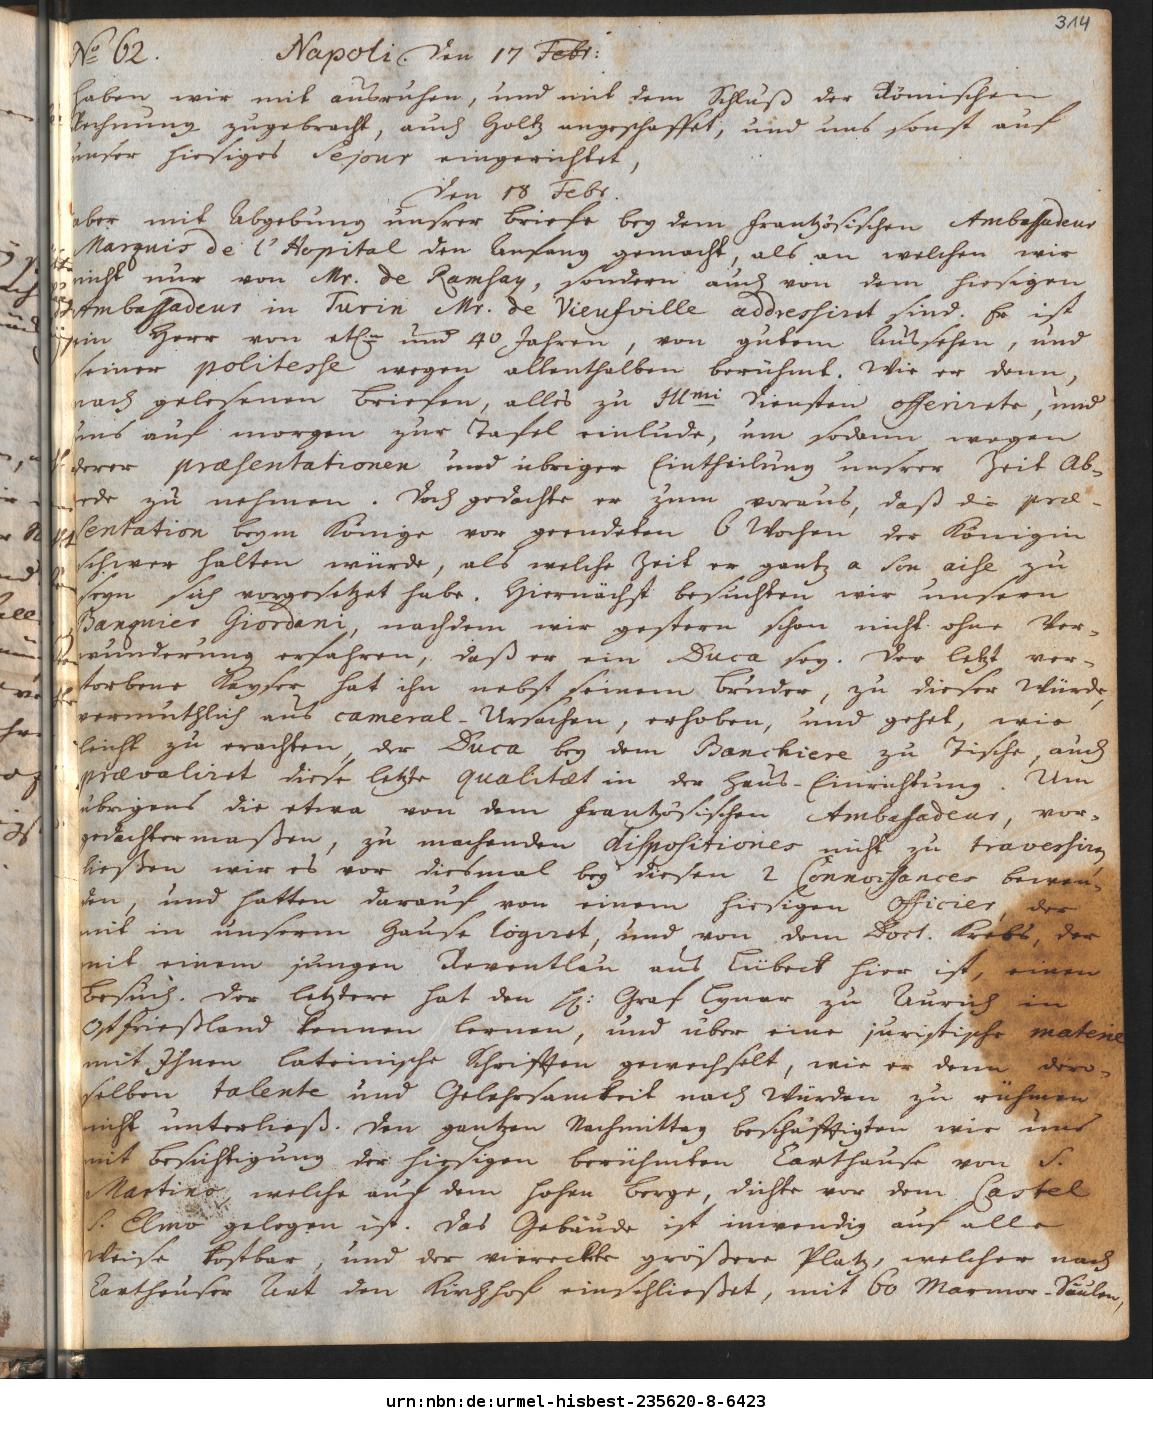 314
No 62. Napoli. den 17 Febr:
haben wir mit ausruhen, und mit dem Schluß der Römischen
Rechnung zugebracht, auch Holtz angeschaffet, und uns sonst auf
unser hiesiges Sejour eingerichtet,
den 18 Febr.
aber mit Abgebung unsrer Briefe bey dem Frantzösischen Ambassadeur
Marquis de l'Hopital den Anfang gemacht, als an welchen wir
nicht nur von Mr. de Ramsay, sondern auch von dem hiesigen
Ambassadeur in Turin Mr. de Vieufville addressiret sind. Er ist
ein Herr von etl. und 40 Jahren, von gutem Aussehen, und
seiner politesse wegen allenthalben berühmt. Wie er denn,
nach gelesenen Briefen, alles zu Illmi Diensten offerirete, und
uns auf morgen zur Tafel einlude, um sodann wegen
derer præsentationen und übriger Eintheilung unsrer Zeit Ab-
rede zu nehmen. Doch gedachte er zum voraus, daß die præ-
sentation beym Könige vor geendeten 6 Wochen der Königin
schwer halten würde, als welche Zeit er gantz a son aise zu
seyn sich vorgesetzet habe. Hiernächst besuchten wir unsern
Banquier Giordani, nachdem wir gestern schon nicht ohne Ver-
wunderung erfahren, daß er ein Duca sey. Der letzt ver-
storbene Kayser hat ihn nebst seinem Bruder, zu dieser Würde,
vermuthlich aus cameral-Ursachen, erhoben, und gehet, wie
leicht zu erachten, der Duca bey dem Banchiere zu Tische, auch
prævaliret diese letzte qualitæt in der Haus-Einrichtung. Um
übrigens die etwa von dem Frantzösischen Ambassadeur, vor-
gedachtermaßen, zu machenden dispositiones nicht zu traversiren,
ließen wir es vor diesmal bey diesen 2 Connoissances bewen-
den, und hatten darauf von einem hiesigen Officier, der
mit in unserm Hause logiret, und von dem Doct. Krebs, der
mit einem jungen Reventlau aus Lübeck hier ist, einen
Besuch. Der letztere hat den H: Graf Lynar zu Aurich in
Ostfrießland kennen lernen, und über eine juristische materie
mit Ihnen lateinische Schrifften gewechselt, wie er denn dero-
selben talente und Gelehrsamkeit nach Würden zu rühmen
nicht unterließ. Den gantzen Nachmittag beschäfftigten wir uns
mit Besichtigung der hiesigen berühmten Carthause von S.
Martino, welche auf dem hohen Berge, dichte vor dem Castel
S. Elmo gelegen ist. Das Gebäude ist inwendig auf alle
Weise kostbar, und der viereckte größere Platz, welcher nach
Cartheuser Art den Kirchhof einschließet, mit 60 Marmor-Säulen,
urn:nbn:de:urmel-hisbest-235620-8-6423